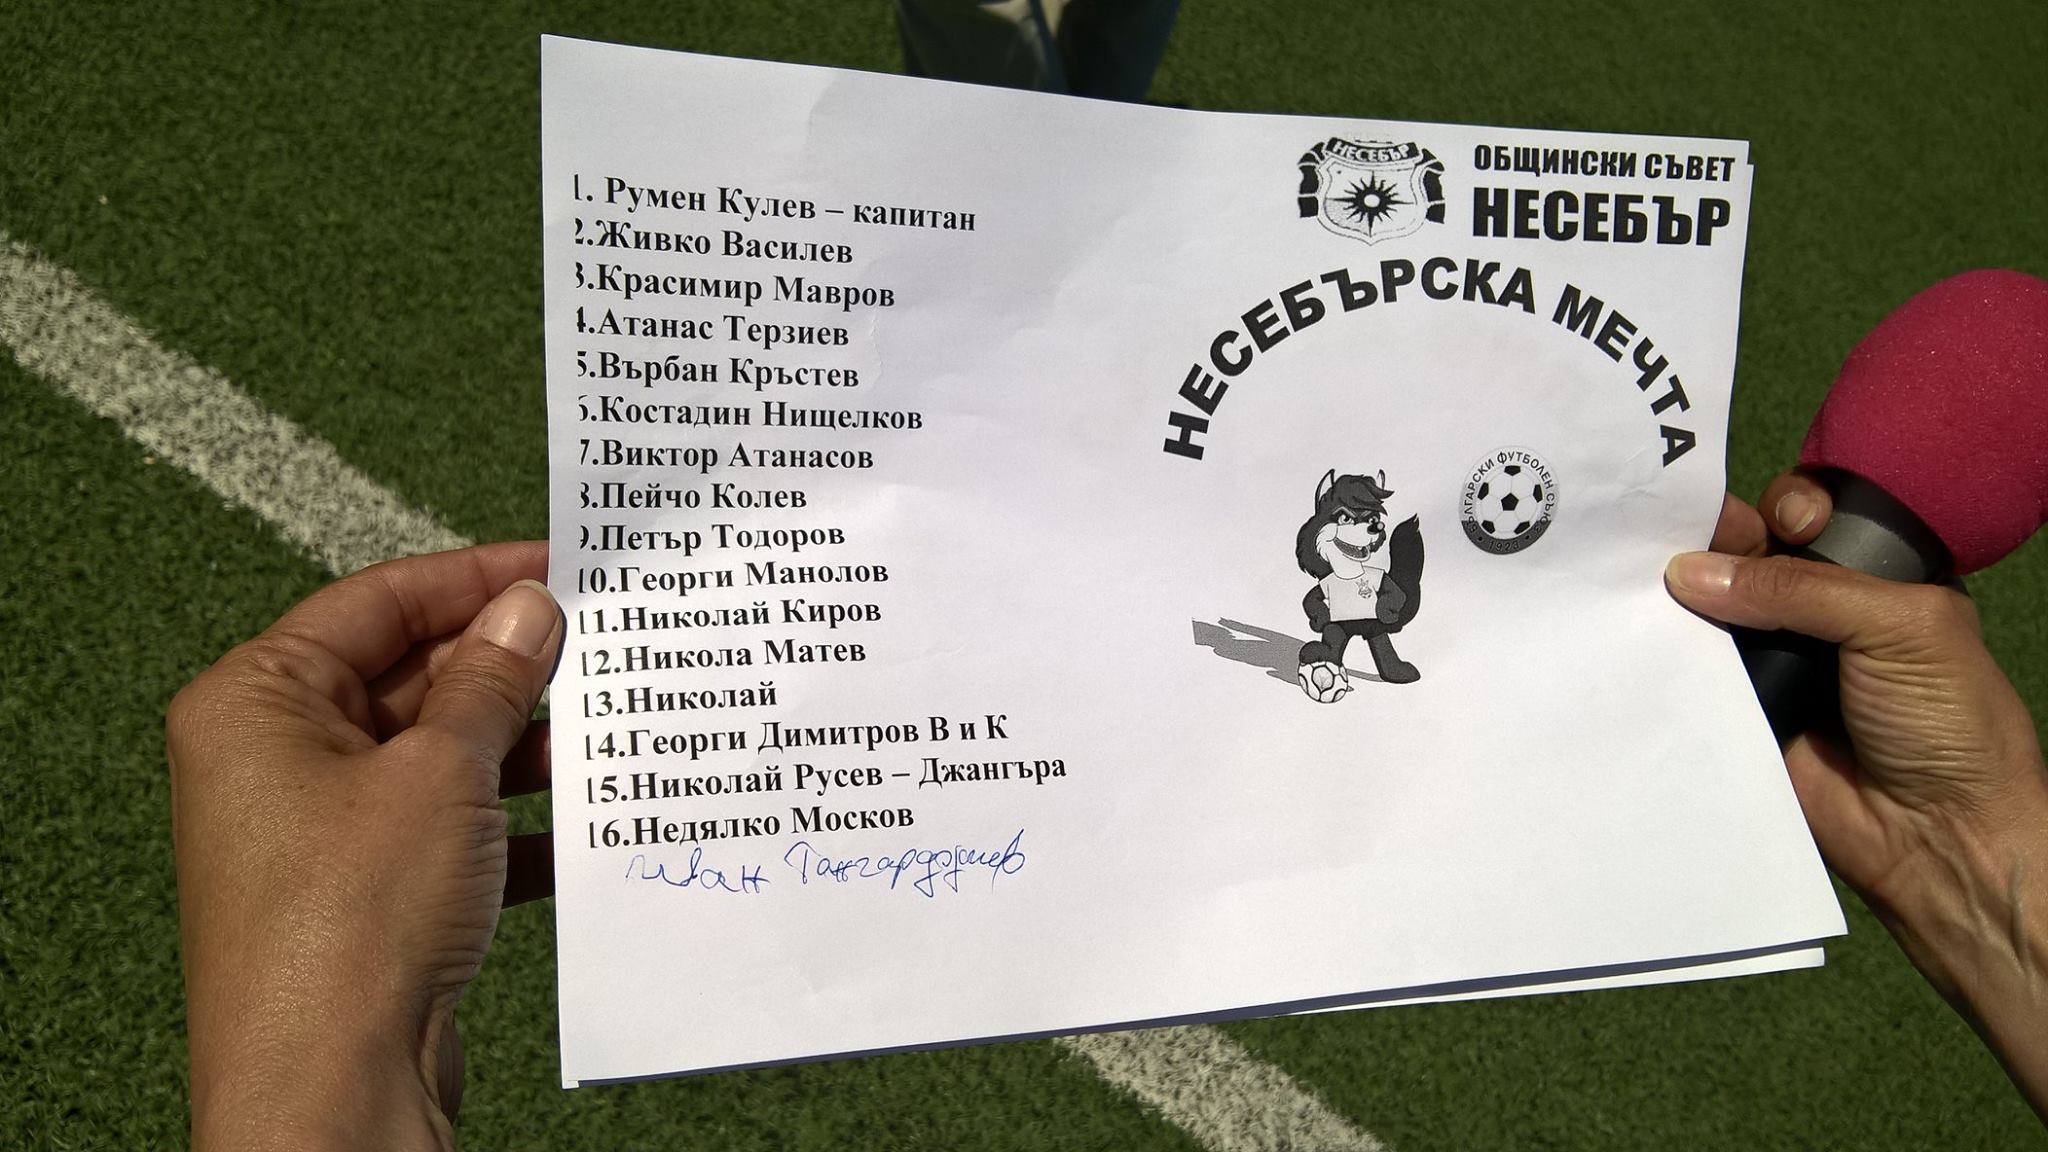 1. Румен Кулев – капитан
2.Живко Василев
3.Красимир Мавров
4.Атанас Терзиев
5.Върбан Кръстев
6.Костадин Нищелков
7.Виктор Атанасов
8.Пейчо Колев
9.Петър Тодоров
10.Георги Манолов
11.Николай Киров
12.Никола Матев
13.Николай
14.Георги Димитров В и К
15.Николай Русев – Джангъра
16.Недялко Москов
Иван
НЕСЕБЪР
ОБЩИНСКИ СЪВЕТ
НЕСЕБЪР
НЕСЕБЪРСКА МЕЧТА
БЪЛГАРСКИ ФУТБОЛЕН СЪЮЗ
1923